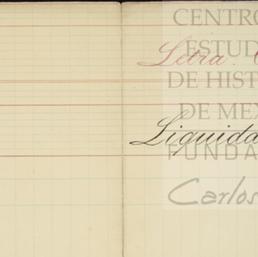 CENTRO
ESTUD
Letra.
DE HIST
DE MEX
Liquida
FUNDA
Carlos